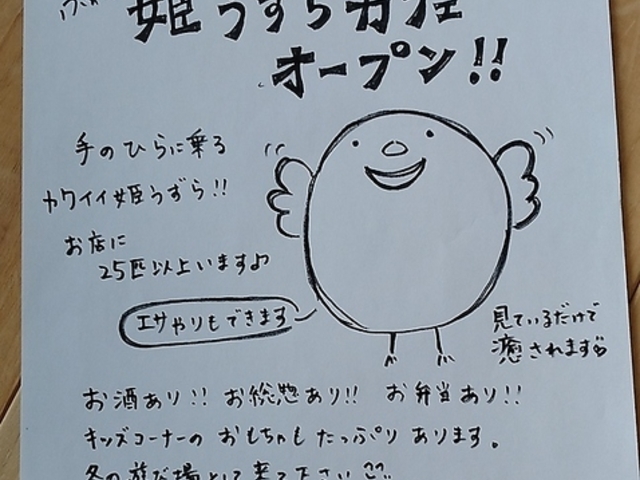 姫うずらカフェ
オープン!!
手のひらに乗る
カワイイ姫うずら!!
お店に
25匹以上います♪
エサやりもできます
見ているだけで
癒されます♡
お酒あり!! お総惣あり!! お弁当あり!!
キッズコーナーの おもちゃも たっぷり あります。
冬の遊び場として来て下さい